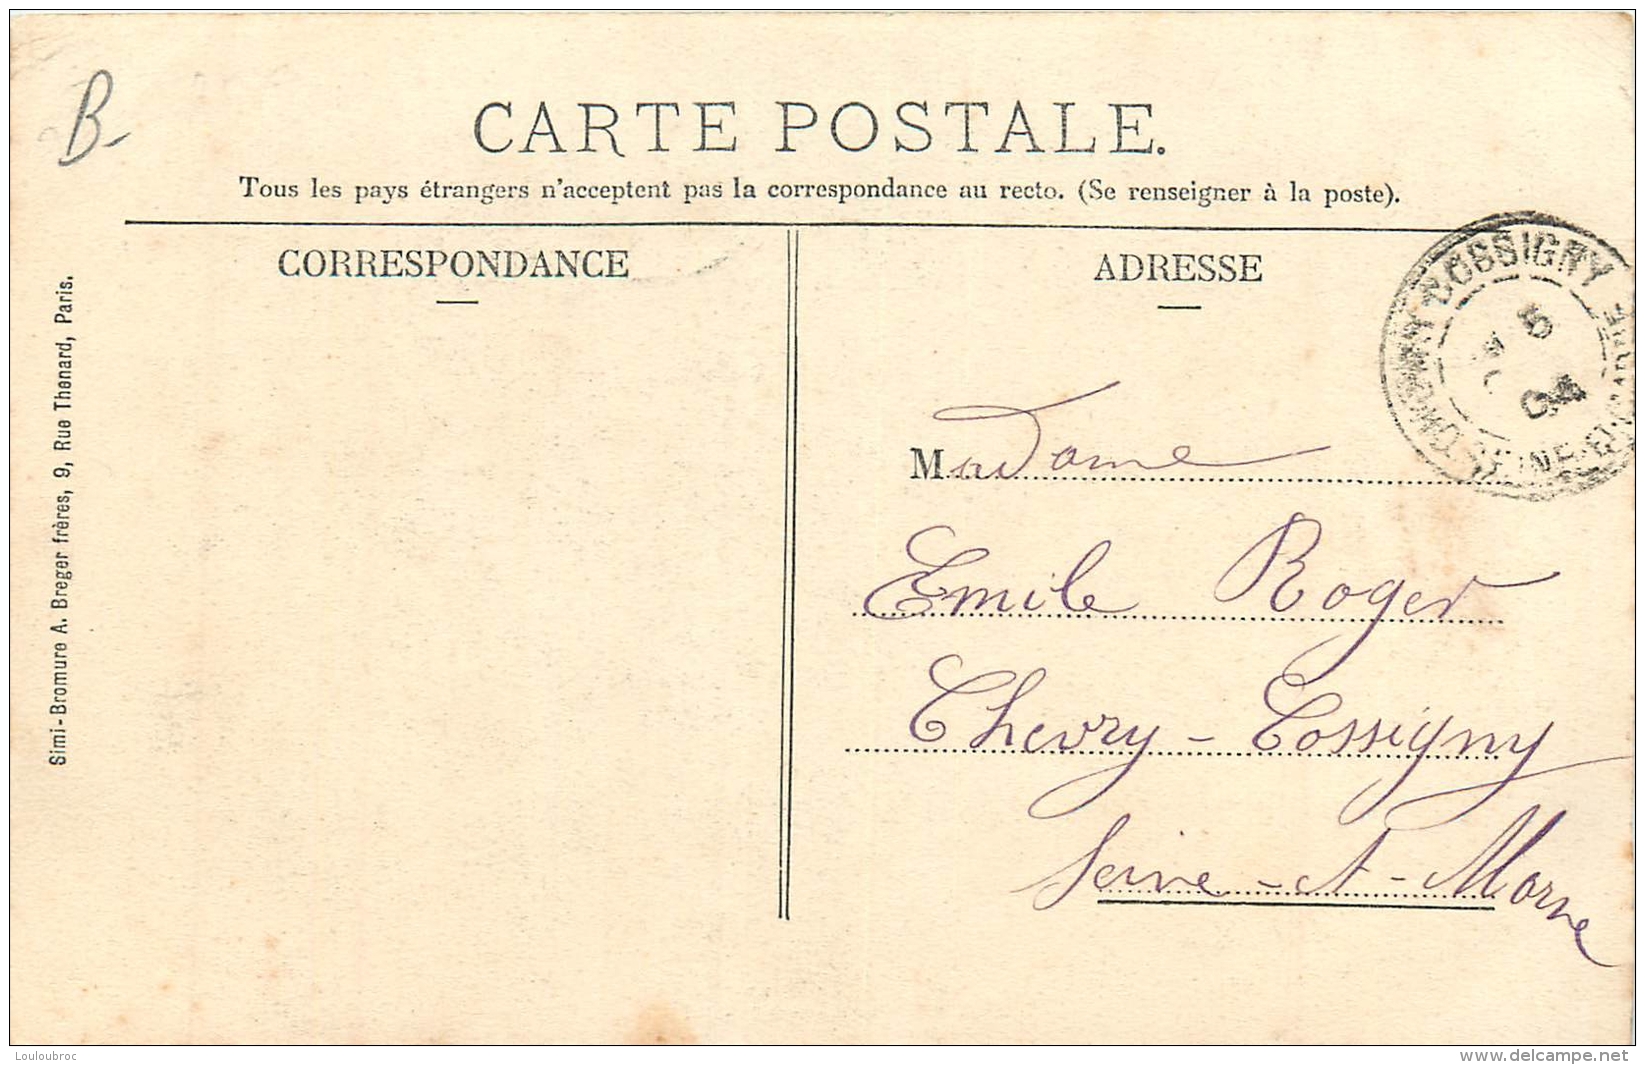 B-
CARTE POSTALE.
Tous les pays étrangers n'acceptent pas la correspondance au recto. (Se renseigner à la poste).
CORRESPONDANCE
ADRESSE
COSSIGNY
5
04
Madame
Emile Roger
Chevry-Cossigny
Seine-et-Marne
Simi-Bromure A. Breger frères, 9, Rue Thenard, Paris.
Louloubroc
www.delcampe.net